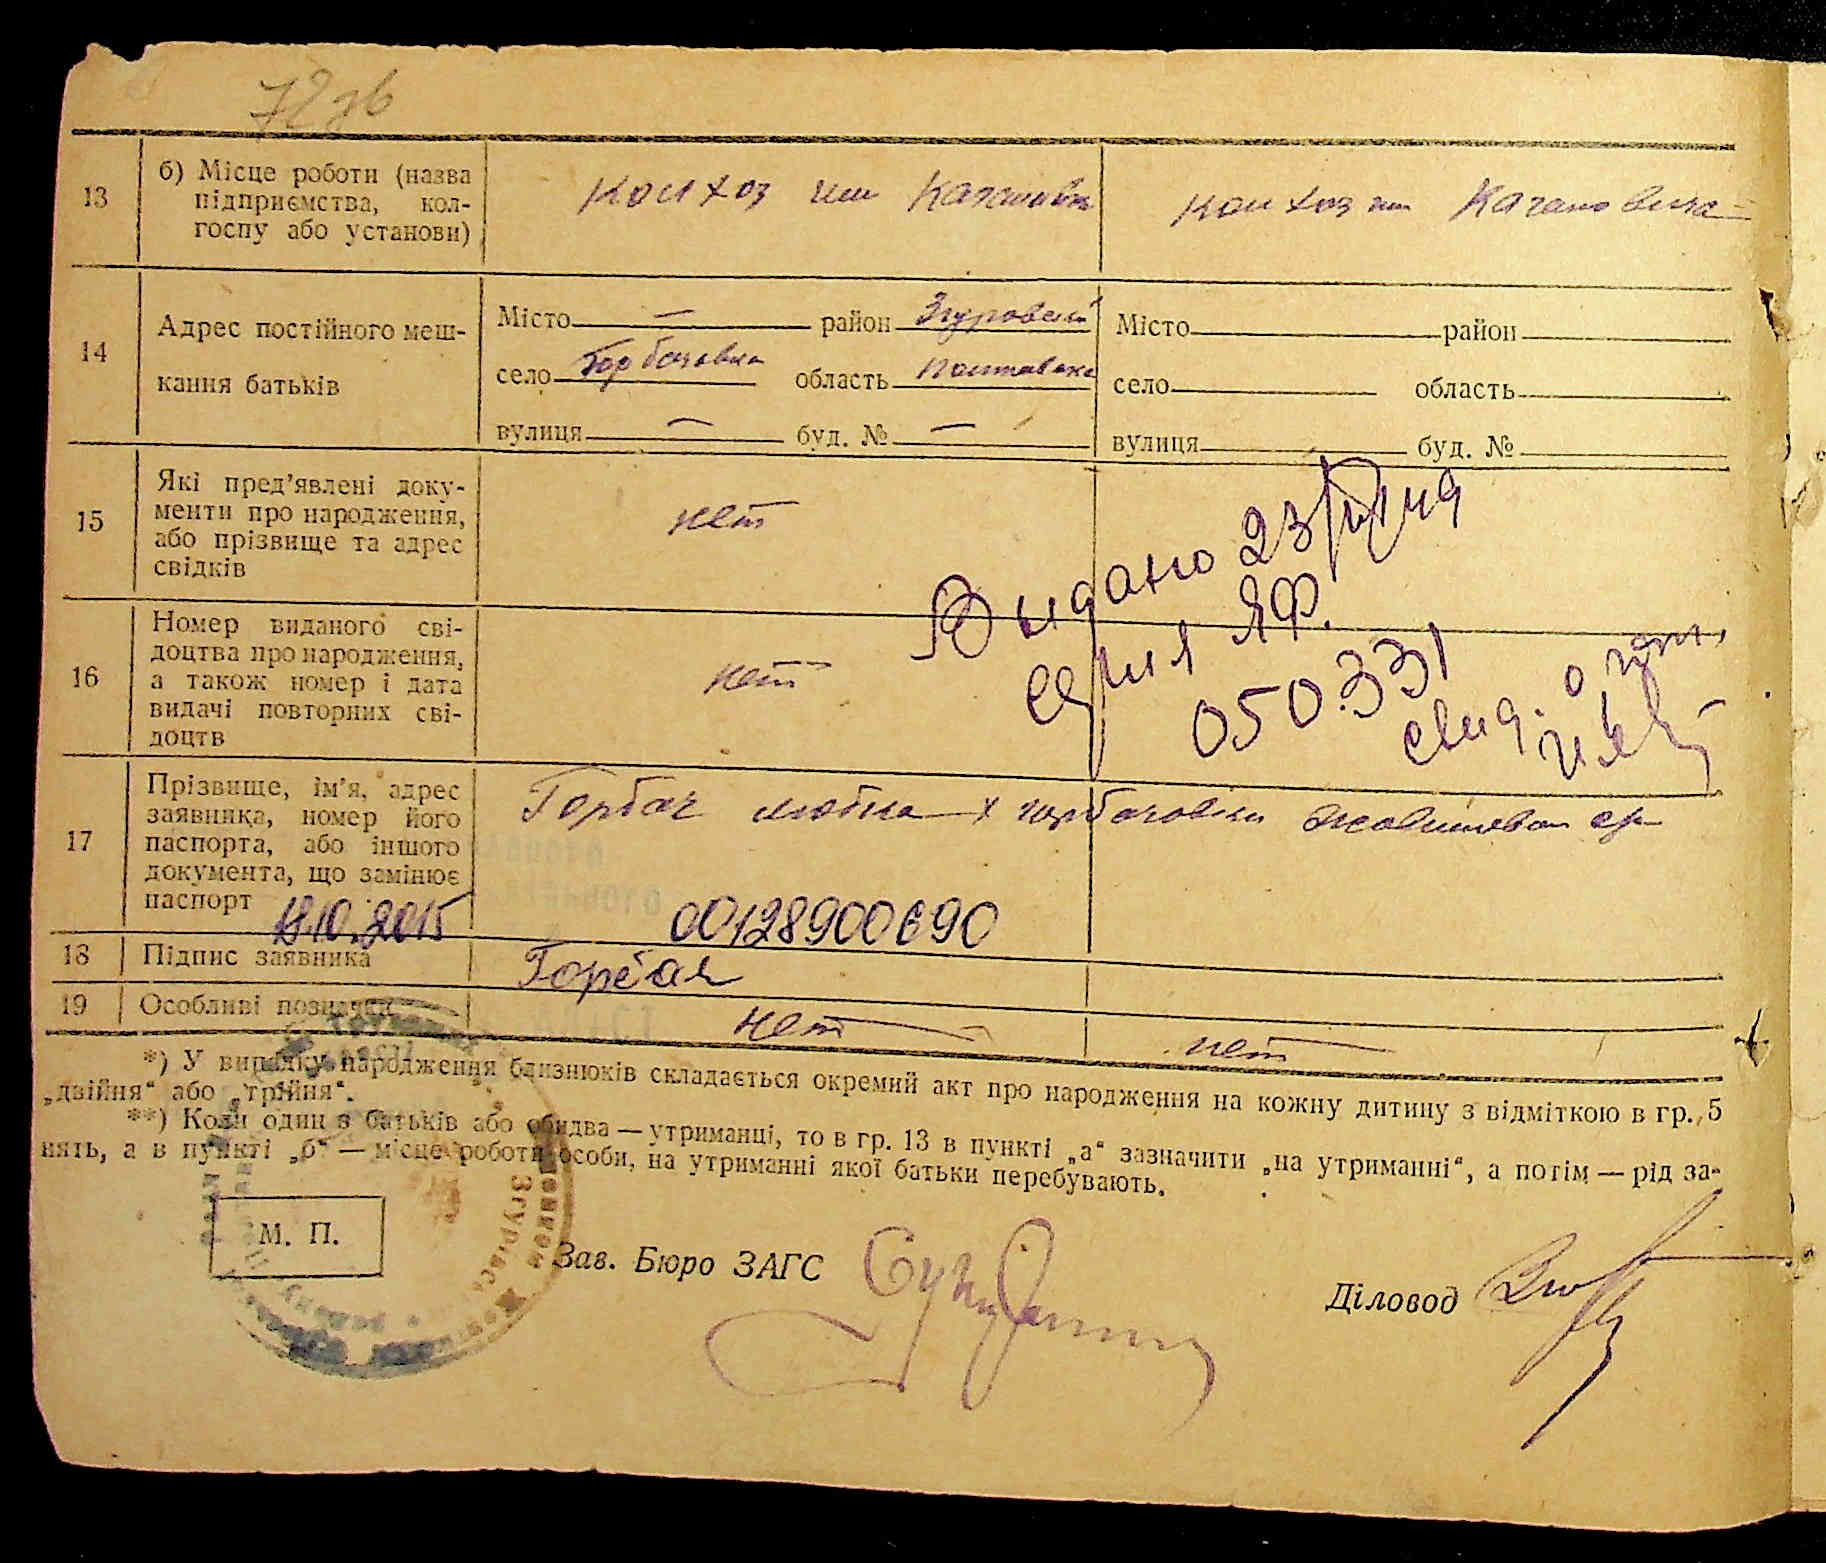 72 зв
13 б) Місце роботи (назва підприємства, колгоспу або установи) колхоз им Кагановича колхоз им Кагановича
14 Адрес постійного мешкання батьків
Місто — район Згуровский Місто район
село Горбачовка область Полтавская село область
вулиця — буд. № — вулиця буд. №
15 Які пред'явлені документи про народження, або прізвище та адрес свідків нет
Выдано 23/IV/49
серия ЯФ.
050331
свид. о
16 Номер виданого свідоцтва про народження, а також номер і дата видачі повторних свідоцтв нет
17 Прізвище, ім'я, адрес заявника, номер його паспорта, або іншого документа, що замінює паспорт Горбач х Горбачовка
10.2015 00128900690
18 Підпис заявника Горбач
19 Особливі позначки нет нет
*) У випадку народження близнюків складається окремий акт про народження на кожну дитину з відміткою в гр. 5
„двійня“ або „трійня“.
**) Коли один з батьків або обидва — утриманці, то в гр. 13 в пункті „а“ зазначити „на утриманні“, а потім — рід за-
нять, а в пункті „б“ — місце роботи особи, на утриманні якої батьки перебувають.
М. П.
Зав. Бюро ЗАГС
Діловод